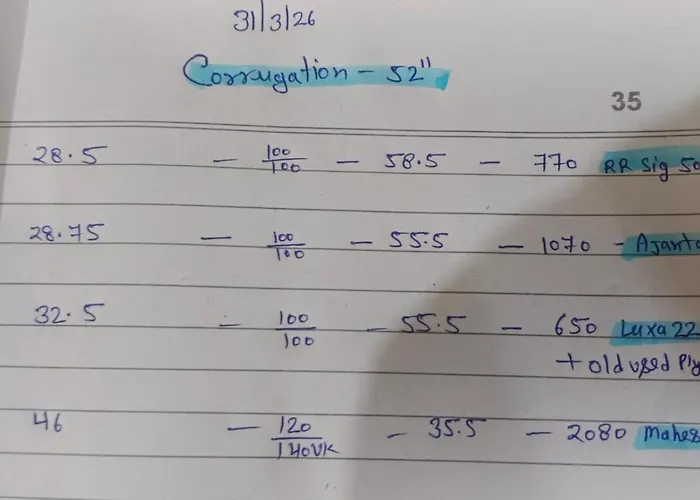 31/3/26
Corrugation - 52"
35
28.5 - 100/100 - 58.5 - 770 RR Sig 50
28.75 - 100/100 - 55.5 - 1070 - Ajanta
32.5 - 100/100 - 55.5 - 650 Luxa 22
+ old used Ply
46 - 120/140VK - 35.5 - 2080 Mahes